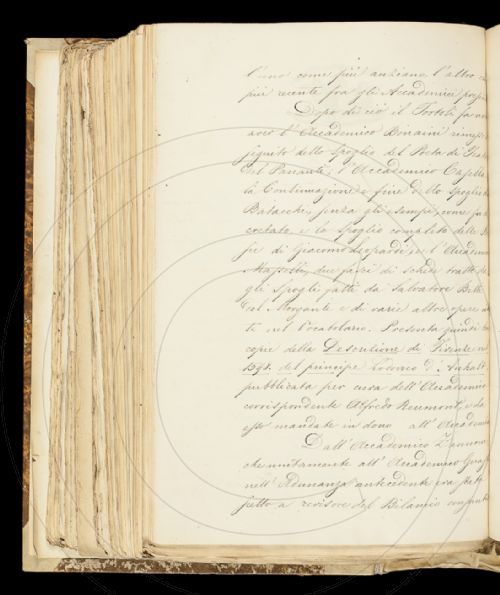 l'uno come più anziano l'altro
più recente fra gli Accademici
Dopo di ciò il Tortoli fa
l'Accademico Bonaini
seguito dello spoglio del Poeta di
del Pananti; l'Accademico
la Continuazione e fine dello spoglio
Batacchi, senza gli esempi, come
e lo spoglio completo delle
di Giacomo Leopardi; e l'
due fasci di schede tratte
gli spogli fatti da Salvatore
Col Morgante e di varie altre opere
te nel Vocabolario. Presenta quindi
copie della Descrizione di Firenze
1598. del principe Lodovico d' Anhalt
pubblicata per cura dell' Accademico
corrispondente Alfredo Reumont, e da
esso mandate in dono all'
Dall' Accademico Zannoni
che unitamente all' Accademico
nell' Adunanza antecedente era
a revisore del Bilancio